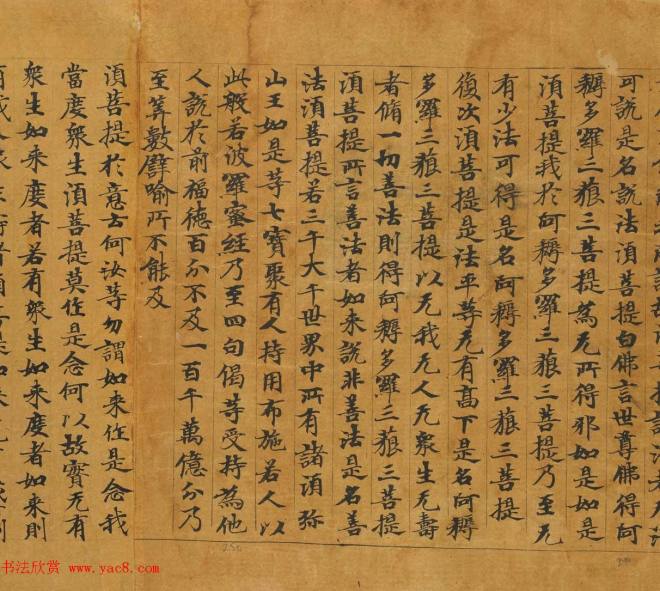 提說法者无法
可說是名說法須菩提白佛言世尊佛得阿
耨多羅三藐三菩提為无所得耶如是如是
須菩提我於阿耨多羅三藐三菩提乃至无
有少法可得是名阿耨多羅三藐三菩提
復次須菩提是法平等无有高下是名阿耨
多羅三藐三菩提以无我无人无眾生无壽
者脩一切善法則得阿耨多羅三藐三菩提
須菩提所言善法者如来說非善法是名善
法須菩提若三千大千世界中所有諸須弥
山王如是等七寶聚有人持用布施若人以
此般若波羅蜜經乃至四句偈等受持為他
人說於前福德百分不及一百千萬億分乃
至筭數譬喻所不能及
須菩提於意云何汝等勿謂如来作是念我
當度眾生須菩提莫作是念何以故實无有
眾生如来度者若有眾生如来度者如来則
书法欣赏 www.yac8.com